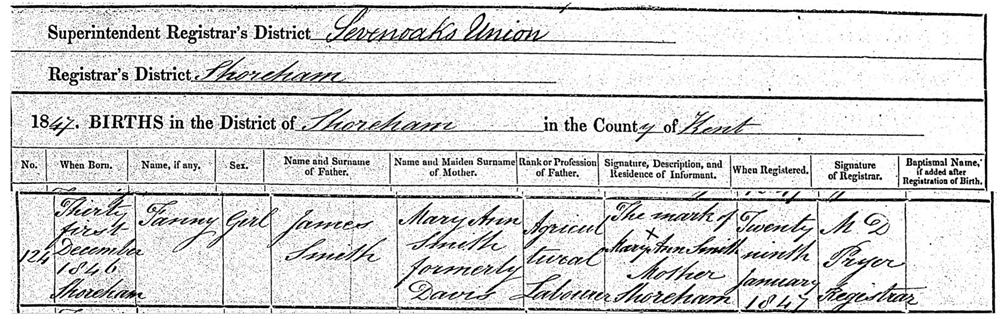 Superintendent Registrar's District Sevenoaks Union
Registrar's District Shoreham
1847. BIRTHS in the District of Shoreham in the County of Kent
No. When Born. Name, if any. Sex. Name and Surname of Father. Name and Maiden Surname of Mother. Rank or Profession of Father. Signature, Description, and Residence of Informant. When Registered. Signature of Registrar. Baptismal Name, if added after Registration of Birth.
124 Thirty first December 1846 Shoreham Fanny Girl James Smith Mary Ann Smith formerly Davis Agricultural Labourer The mark of X Mary Ann Smith Mother Shoreham Twenty ninth January 1847 M D Pryer Registrar